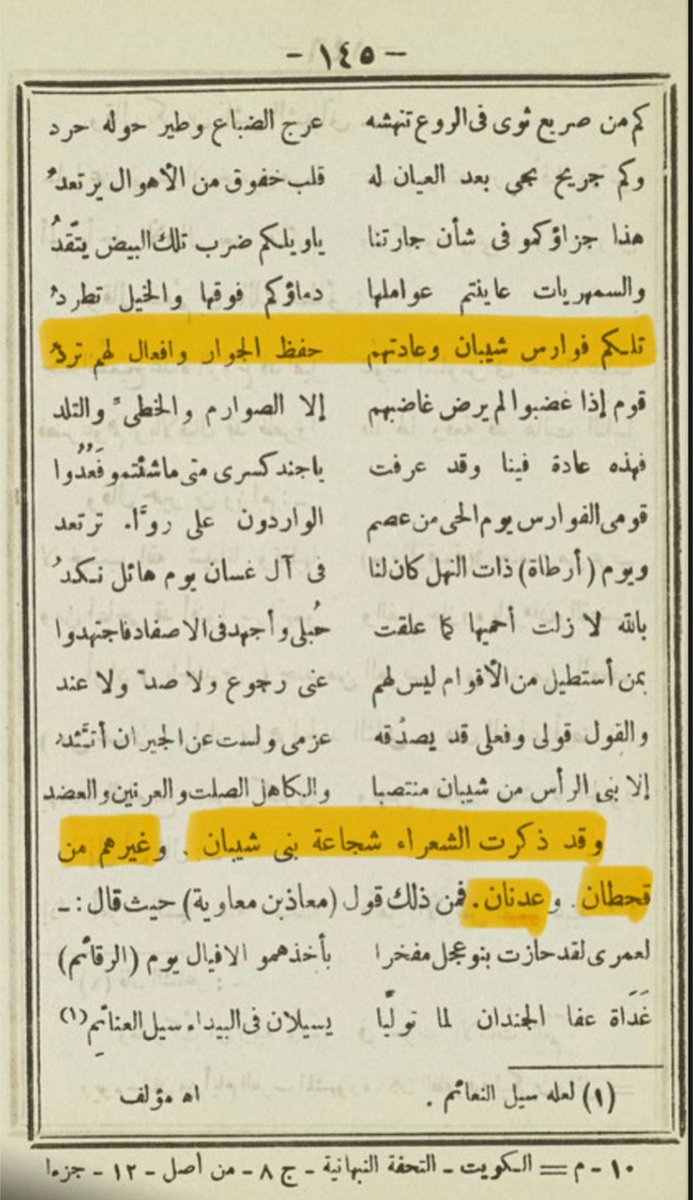 - ١٤٥ -
كم من صريع ثوى فى الروع تنهشه عرج الضباع وطير حوله حرد
وكم جريح نجى بعد العيان له قلب خفوق من الأهوال يرتعدُ
هذا جزاؤكمو فى شأن جارتنا ياويلكم ضرب تلك البيض يتّقدُ
والسمهريات عاينتم عواملها دماؤكم فوقها والخيل تطردُ
تلكم فوارس شيبان وعادتهم حفظ الجوار وافعال لهم تردُ
قوم إذا غضبوا لم يرض غاضبهم إلا الصوارم والخطىّ والتلد
فهذه عادة فينا وقد عرفت ياجند كسرى متى ماشئتمو فَعُدُوا
قومى الفوارس يوم الحى من عصم الواردون على روَّا. ترتعد
ويوم (أرطاة) ذات النهل كان لنا فى آل غسان يوم هائل نكدُ
بالله لا زلت أحميها كما علقت حُبلى وأجهد فى الاصفاد فاجتهدوا
بمن أستطيل من الأقوام ليس لهم عنى رجوع ولا صدّ ولا عند
والقول قولى وفعلى قد يصدُقه عزمى ولست عن الجيران أتـَّئد
إلا بنى الرأس من شيبان منتصبا والكاهل الصلت والعرنين والعضد
وقد ذكرت الشعراء شجاعة بنى شيبان . وغيرهم من
قحطان . وعدنان . فمن ذلك قول (معاذ بن معاوية) حيث قال : ـ
لعمرى لقد حازت بنو عجل مفخرا بأخذهمو الافيال يوم (الرقائم)
غَدَاة عفا الجندان لما تولَّيا يسيلان فى البيداء سيل العنائمِ (١)
(١) لعله سيل النعائم . اه مؤلف
١٠ - م == الكويت - التحفة النبهانية - ج ٨ - من أصل - ١٢ - جزءا